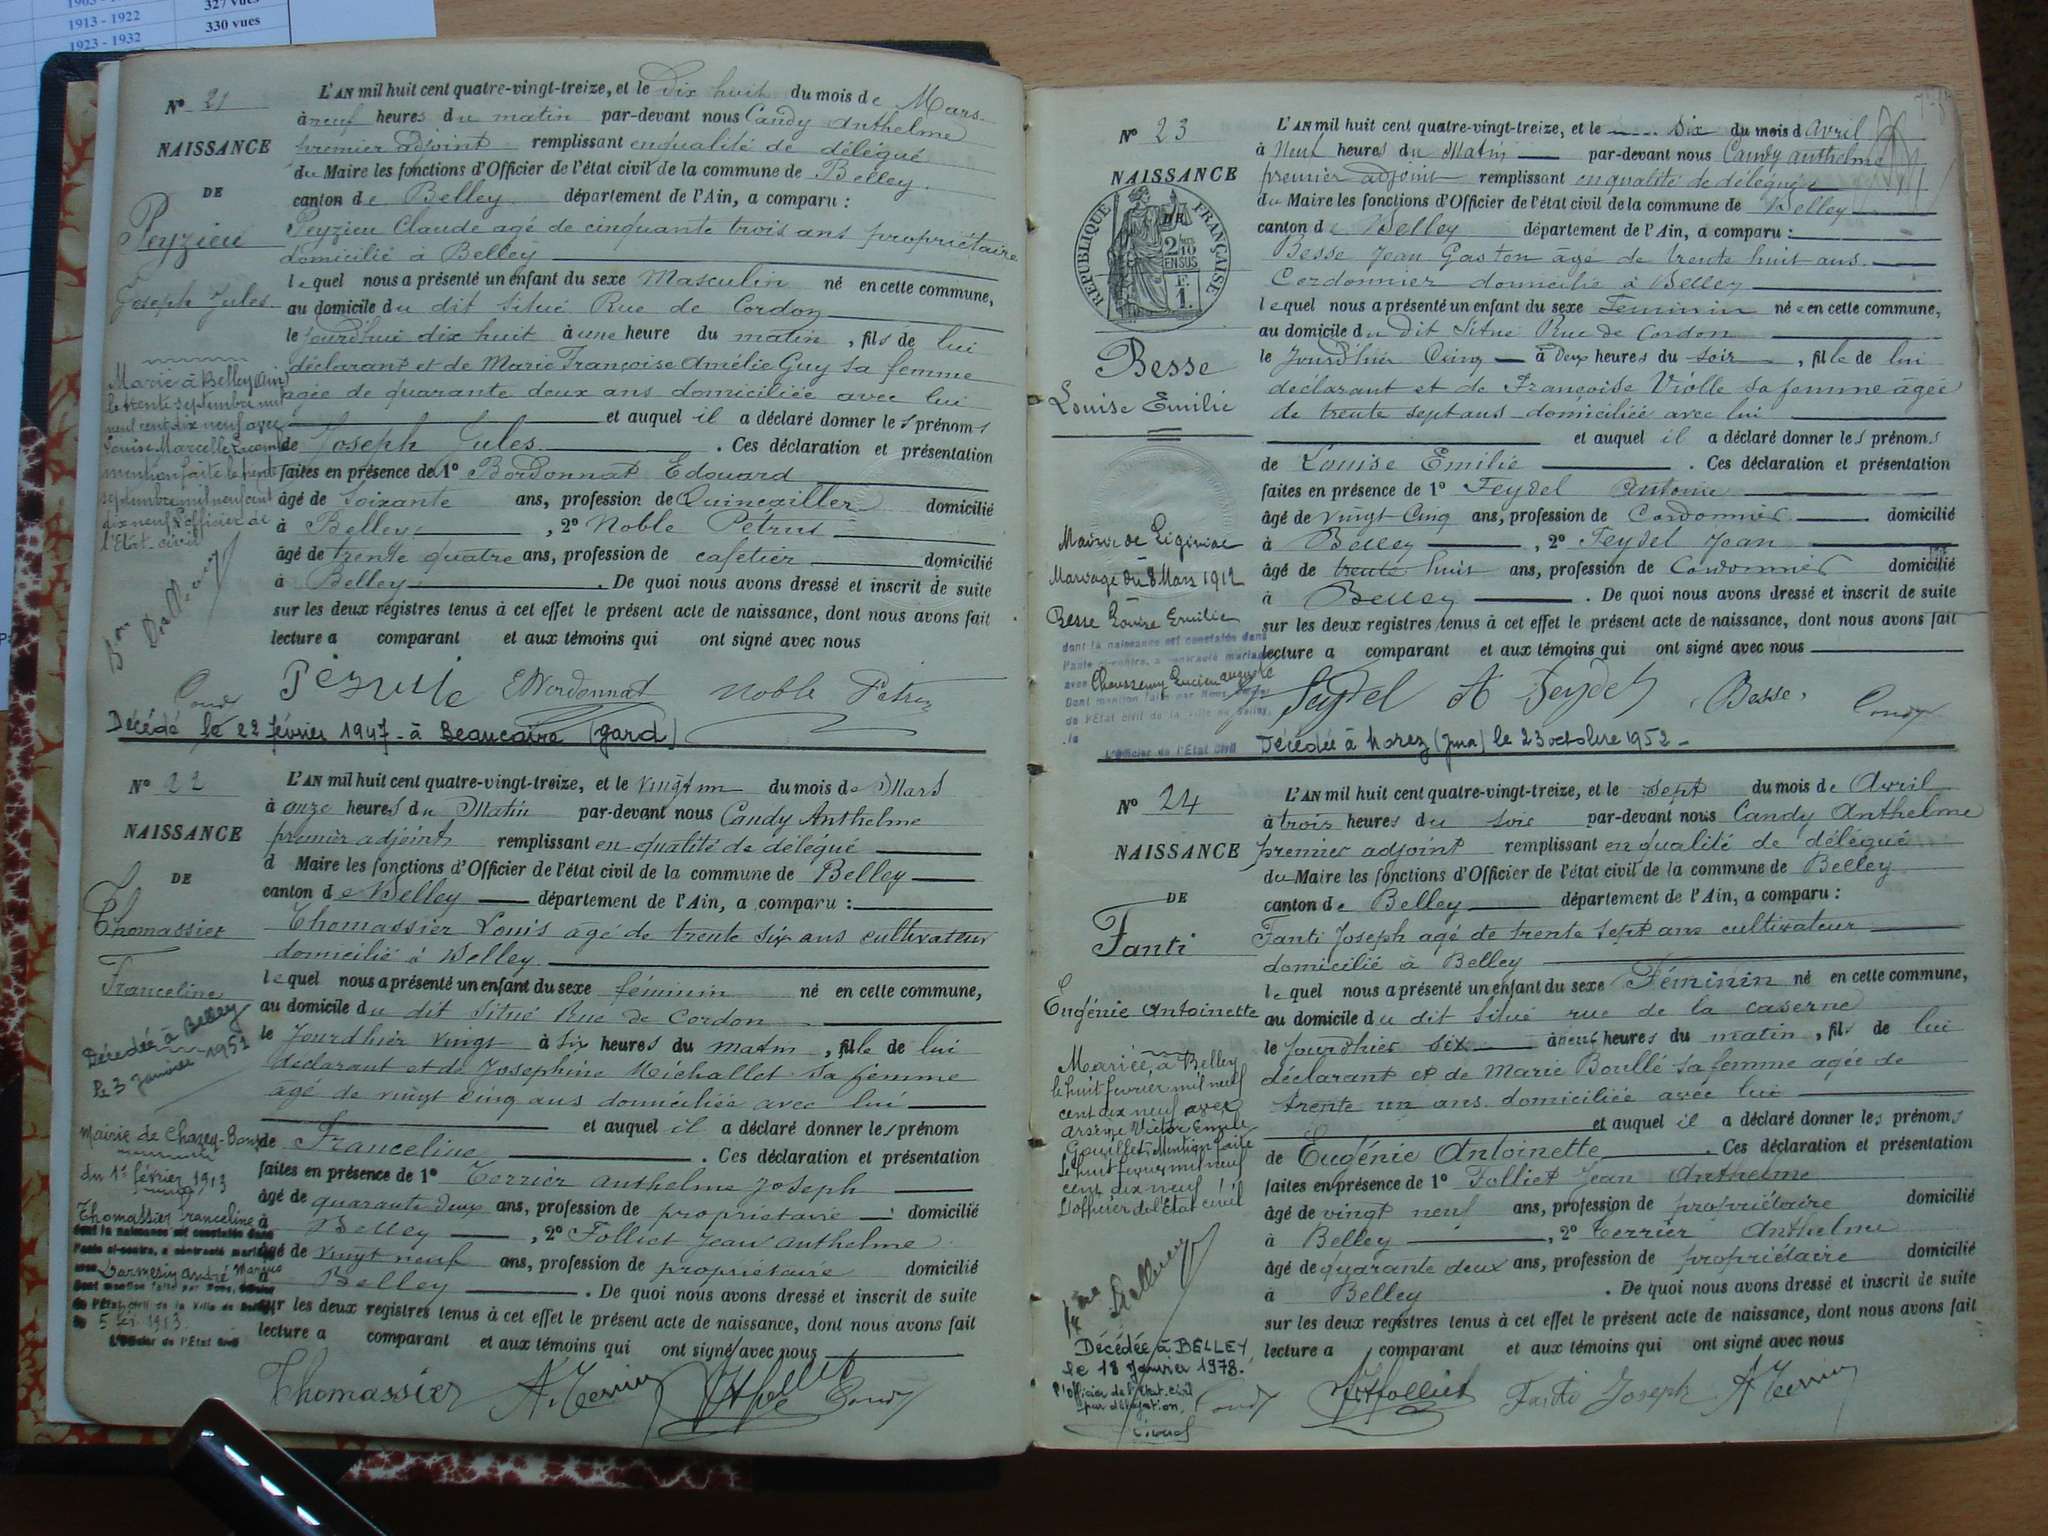 327 vues
1913 - 1922
330 vues
1923 - 1932
N° 21
NAISSANCE
DE
Peyzieu
Joseph Jules
L'AN mil huit cent quatre-vingt-treize, et le Dix huit du mois de Mars
à neuf heures du matin par-devant nous Candy Anthelme
premier adjoint remplissant en qualité de délégué
du Maire les fonctions d'Officier de l'état civil de la commune de Belley
canton de Belley département de l'Ain, a comparu :
Peyzieu Claude agé de cinquante trois ans propriétaire
domicilié à Belley
lequel nous a présenté un enfant du sexe Masculin né en cette commune,
au domicile du dit situé Rue de Cordon
le jourd'hui dix huit à une heure du matin, fils de lui
déclarant et de Marie Françoise Amélie Guy sa femme
agée de quarante deux ans domiciliée avec lui
et auquel il a déclaré donner les prénoms
de Joseph Jules. Ces déclaration et présentation
faites en présence de 1° Bordonnat Edouard
âgé de soixante ans, profession de Quincailler domicilié
à Belley, 2° Noble Pétrus
âgé de trente quatre ans, profession de cafetier domicilié
à Belley. De quoi nous avons dressé et inscrit de suite
sur les deux registres tenus à cet effet le présent acte de naissance, dont nous avons fait
lecture a comparant et aux témoins qui ont signé avec nous
Marié à Belley (Ain)
le trente septembre mil
neuf cent dix neuf avec
Louise Marcelle
mention faite le trente
septembre mil neuf cent
dix neuf L'officier de
l'Etat-civil
E Bordonnat Noble Petrus
Candy
Décédé le 22 février 1947 - à Beaucaire (gard)
N° 22
NAISSANCE
DE
Thomassier
Franceline
L'AN mil huit cent quatre-vingt-treize, et le vingt un du mois de Mars
à onze heures du Matin par-devant nous Candy Anthelme
premier adjoint remplissant en qualité de délégué
d Maire les fonctions d'Officier de l'état civil de la commune de Belley
canton de Belley département de l'Ain, a comparu :
Thomassier Louis agé de trente six ans cultivateur
domicilié à Belley
lequel nous a présenté un enfant du sexe féminin né en cette commune,
au domicile du dit situé Rue de Cordon
le jourdhier vingt à six heures du matin, fille de lui
déclarant et de Joséphine Michallet sa femme
agé de vingt cinq ans domiciliée avec lui
et auquel il a déclaré donner les prénom
de Franceline. Ces déclaration et présentation
faites en présence de 1° Terrier anthelme Joseph
âgé de quarante deux ans, profession de propriétaire domicilié
à Belley, 2° Folliet Jean anthelme
âgé de vingt neuf ans, profession de propriétaire domicilié
à Belley. De quoi nous avons dressé et inscrit de suite
sur les deux registres tenus à cet effet le présent acte de naissance, dont nous avons fait
lecture a comparant et aux témoins qui ont signé avec nous
Décédée à Belley
le 3 Janvier 1951
Mairie de Chazey-Bons
du 1er février 1913
Thomassier Franceline
dont la naissance est constatée dans
l'acte ci-contre, a contracté mariage
avec Darmezin André Marius
Dont mention faite par Nous, Officier
de l'Etat civil de la Ville de Belley,
le 5 fév. 1913.
L'Officier de l'Etat Civil
Thomassier A. Terrier JA Folliet Candy
N° 23
NAISSANCE
DE
REPUBLIQUE FRANÇAISE
2/10 EN SUS
F. 1.
Besse
Louise Emilie
L'AN mil huit cent quatre-vingt-treize, et le Six du mois d Avril
à Neuf heures du Matin par-devant nous Candy anthelme
premier adjoint remplissant en qualité de délégué
du Maire les fonctions d'Officier de l'état civil de la commune de Belley
canton de Belley département de l'Ain, a comparu :
Besse Jean Gaston âgé de trente huit ans
Cordonnier domicilié à Belley
lequel nous a présenté un enfant du sexe Feminin née en cette commune,
au domicile du dit Situé Rue de Cordon
le Jourd'hier Cinq à Deux heures du soir, fille de lui
déclarant et de Françoise Violle sa femme âgée
de trente sept ans domiciliée avec lui
et auquel il a déclaré donner les prénoms
de Louise Emilie. Ces déclaration et présentation
faites en présence de 1° Feydel Antoine
âgé de vingt Cinq ans, profession de Cordonnier domicilié
à Belley, 2° Feydel Jean
âgé de trente huit ans, profession de Cordonnier domicilié
à Belley. De quoi nous avons dressé et inscrit de suite
sur les deux registres tenus à cet effet le présent acte de naissance, dont nous avons fait
lecture a comparant et aux témoins qui ont signé avec nous
Mairie de
Mariage du 8 Mars 1912
Besse Louise Emilie
dont la naissance est constatée dans
l'acte ci-contre, a contracté mariage
avec Lucien auguste
Dont mention faite par Nous, Officier
de l'Etat civil de la Ville de Belley,
le
L'Officier de l'Etat Civil
Feydel A Feydel Besse Candy
Décédée à Morez (Jura) le 23 octobre 1952 -
N° 24
NAISSANCE
DE
Fanti
Eugénie Antoinette
L'AN mil huit cent quatre-vingt-treize, et le sept du mois de Avril
à trois heures du soir par-devant nous Candy Anthelme
premier adjoint remplissant en qualité de délégué
du Maire les fonctions d'Officier de l'état civil de la commune de Belley
canton de Belley département de l'Ain, a comparu :
Fanti Joseph agé de trente sept ans cultivateur
domicilié à Belley
lequel nous a présenté un enfant du sexe Féminin né en cette commune,
au domicile du dit situé rue de la caserne
le jourdhier six à neuf heures du matin, fils de lui
déclarant et de Marie Boullé sa femme agée de
trente un ans domiciliée avec lui
et auquel il a déclaré donner les prénoms
de Eugénie Antoinette. Ces déclaration et présentation
faites en présence de 1° Folliet Jean Anthelme
âgé de vingt neuf ans, profession de propriétaire domicilié
à Belley, 2° Terrier Anthelme
âgé de quarante deux ans, profession de propriétaire domicilié
à Belley. De quoi nous avons dressé et inscrit de suite
sur les deux registres tenus à cet effet le présent acte de naissance, dont nous avons fait
lecture a comparant et aux témoins qui ont signé avec nous
Mariée à Belley
le huit février mil neuf
cent dix neuf avec
Arsène Victor Emile
Gouillet Mention faite
le huit février mil neuf
cent dix neuf
L'officier de l'Etat civil
Décédée à BELLEY
le 18 Janvier 1978.
l'officier de l'Etat-Civil
par délégation,
Candy JA Folliet Fanti Joseph A Terrier